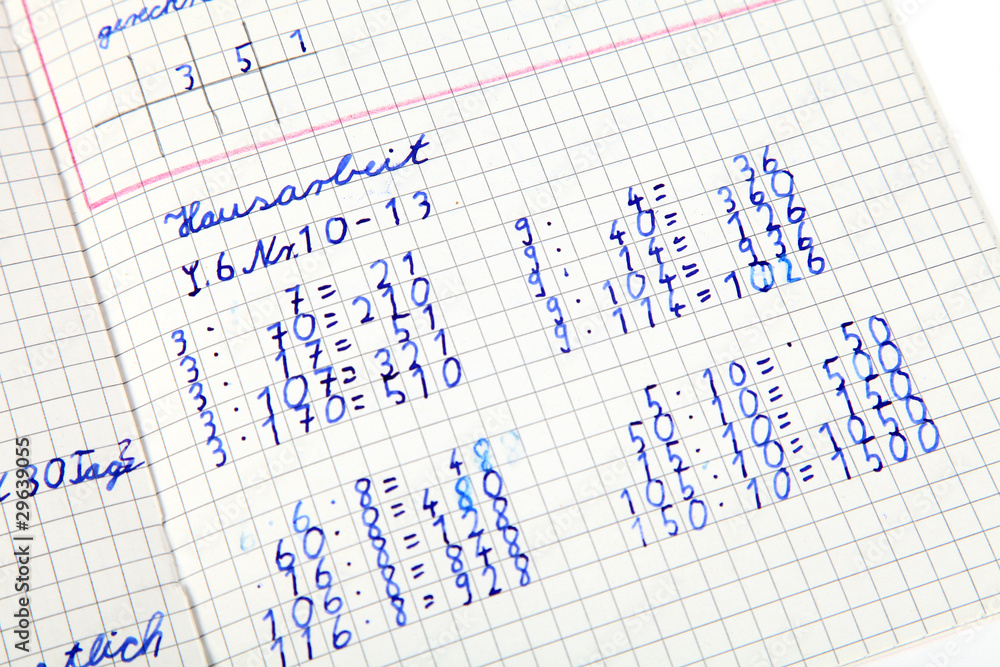 3 5 1
Hausarbeit
S. 6 Nr. 10 - 13
3 · 7 = 21
3 · 70 = 210
3 · 17 = 51
3 · 107 = 321
3 · 170 = 510
9 · 4 = 36
9 · 40 = 360
9 · 14 = 126
9 · 104 = 936
9 · 114 = 1026
6 · 8 = 48
60 · 8 = 480
16 · 8 = 128
106 · 8 = 848
116 · 8 = 928
5 · 10 = 50
50 · 10 = 500
15 · 10 = 150
105 · 10 = 1050
150 · 10 = 1500
30 Tage
Adobe Stock | #29639055